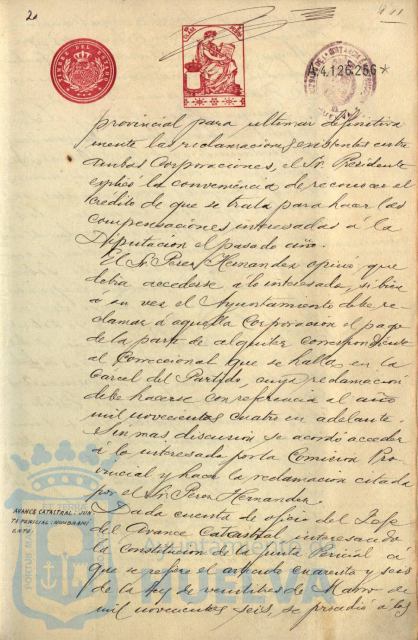 2
4.126.256*
provincial para ultimar definitiva
mente las reclamaciones pendientes entre
ambas Corporaciones, el Sr. Presidente
explicó la conveniencia de reconocer el
crédito de que se trata para hacer las
compensaciones interesadas á la
Diputación el pasado año.
El Sr. Perez Hernandez opinó que
debia accederse á lo interesado, si bien
á su vez el Ayuntamiento debe re-
clamar á aquella Corporacion el pago
de la parte de alquiler correspondiente
al Correccional que se halla en la
Carcel del Partido, cuya reclamacion
debe hacerse con referencia al año
mil novecientos cuatro en adelante
Sin mas discusion se acordó acceder
á lo interesado por la Comision Pro-
vincial y hacer la reclamacion citada
por el Sr. Perez Hernandez.
AVANCE CATASTRAL: JUN
TA PERICIAL: NOMBRAMI
ENTO
Dada cuenta de oficio del Jefe
del Avance Catastral interesando
la Constitucion de la Junta Pericial á
que se refiere el articulo cuarenta y seis
de la Ley de veintitres de Marzo de
mil novecientos seis, se procedió a las
Ayuntamiento
HUELVA
PORTUS